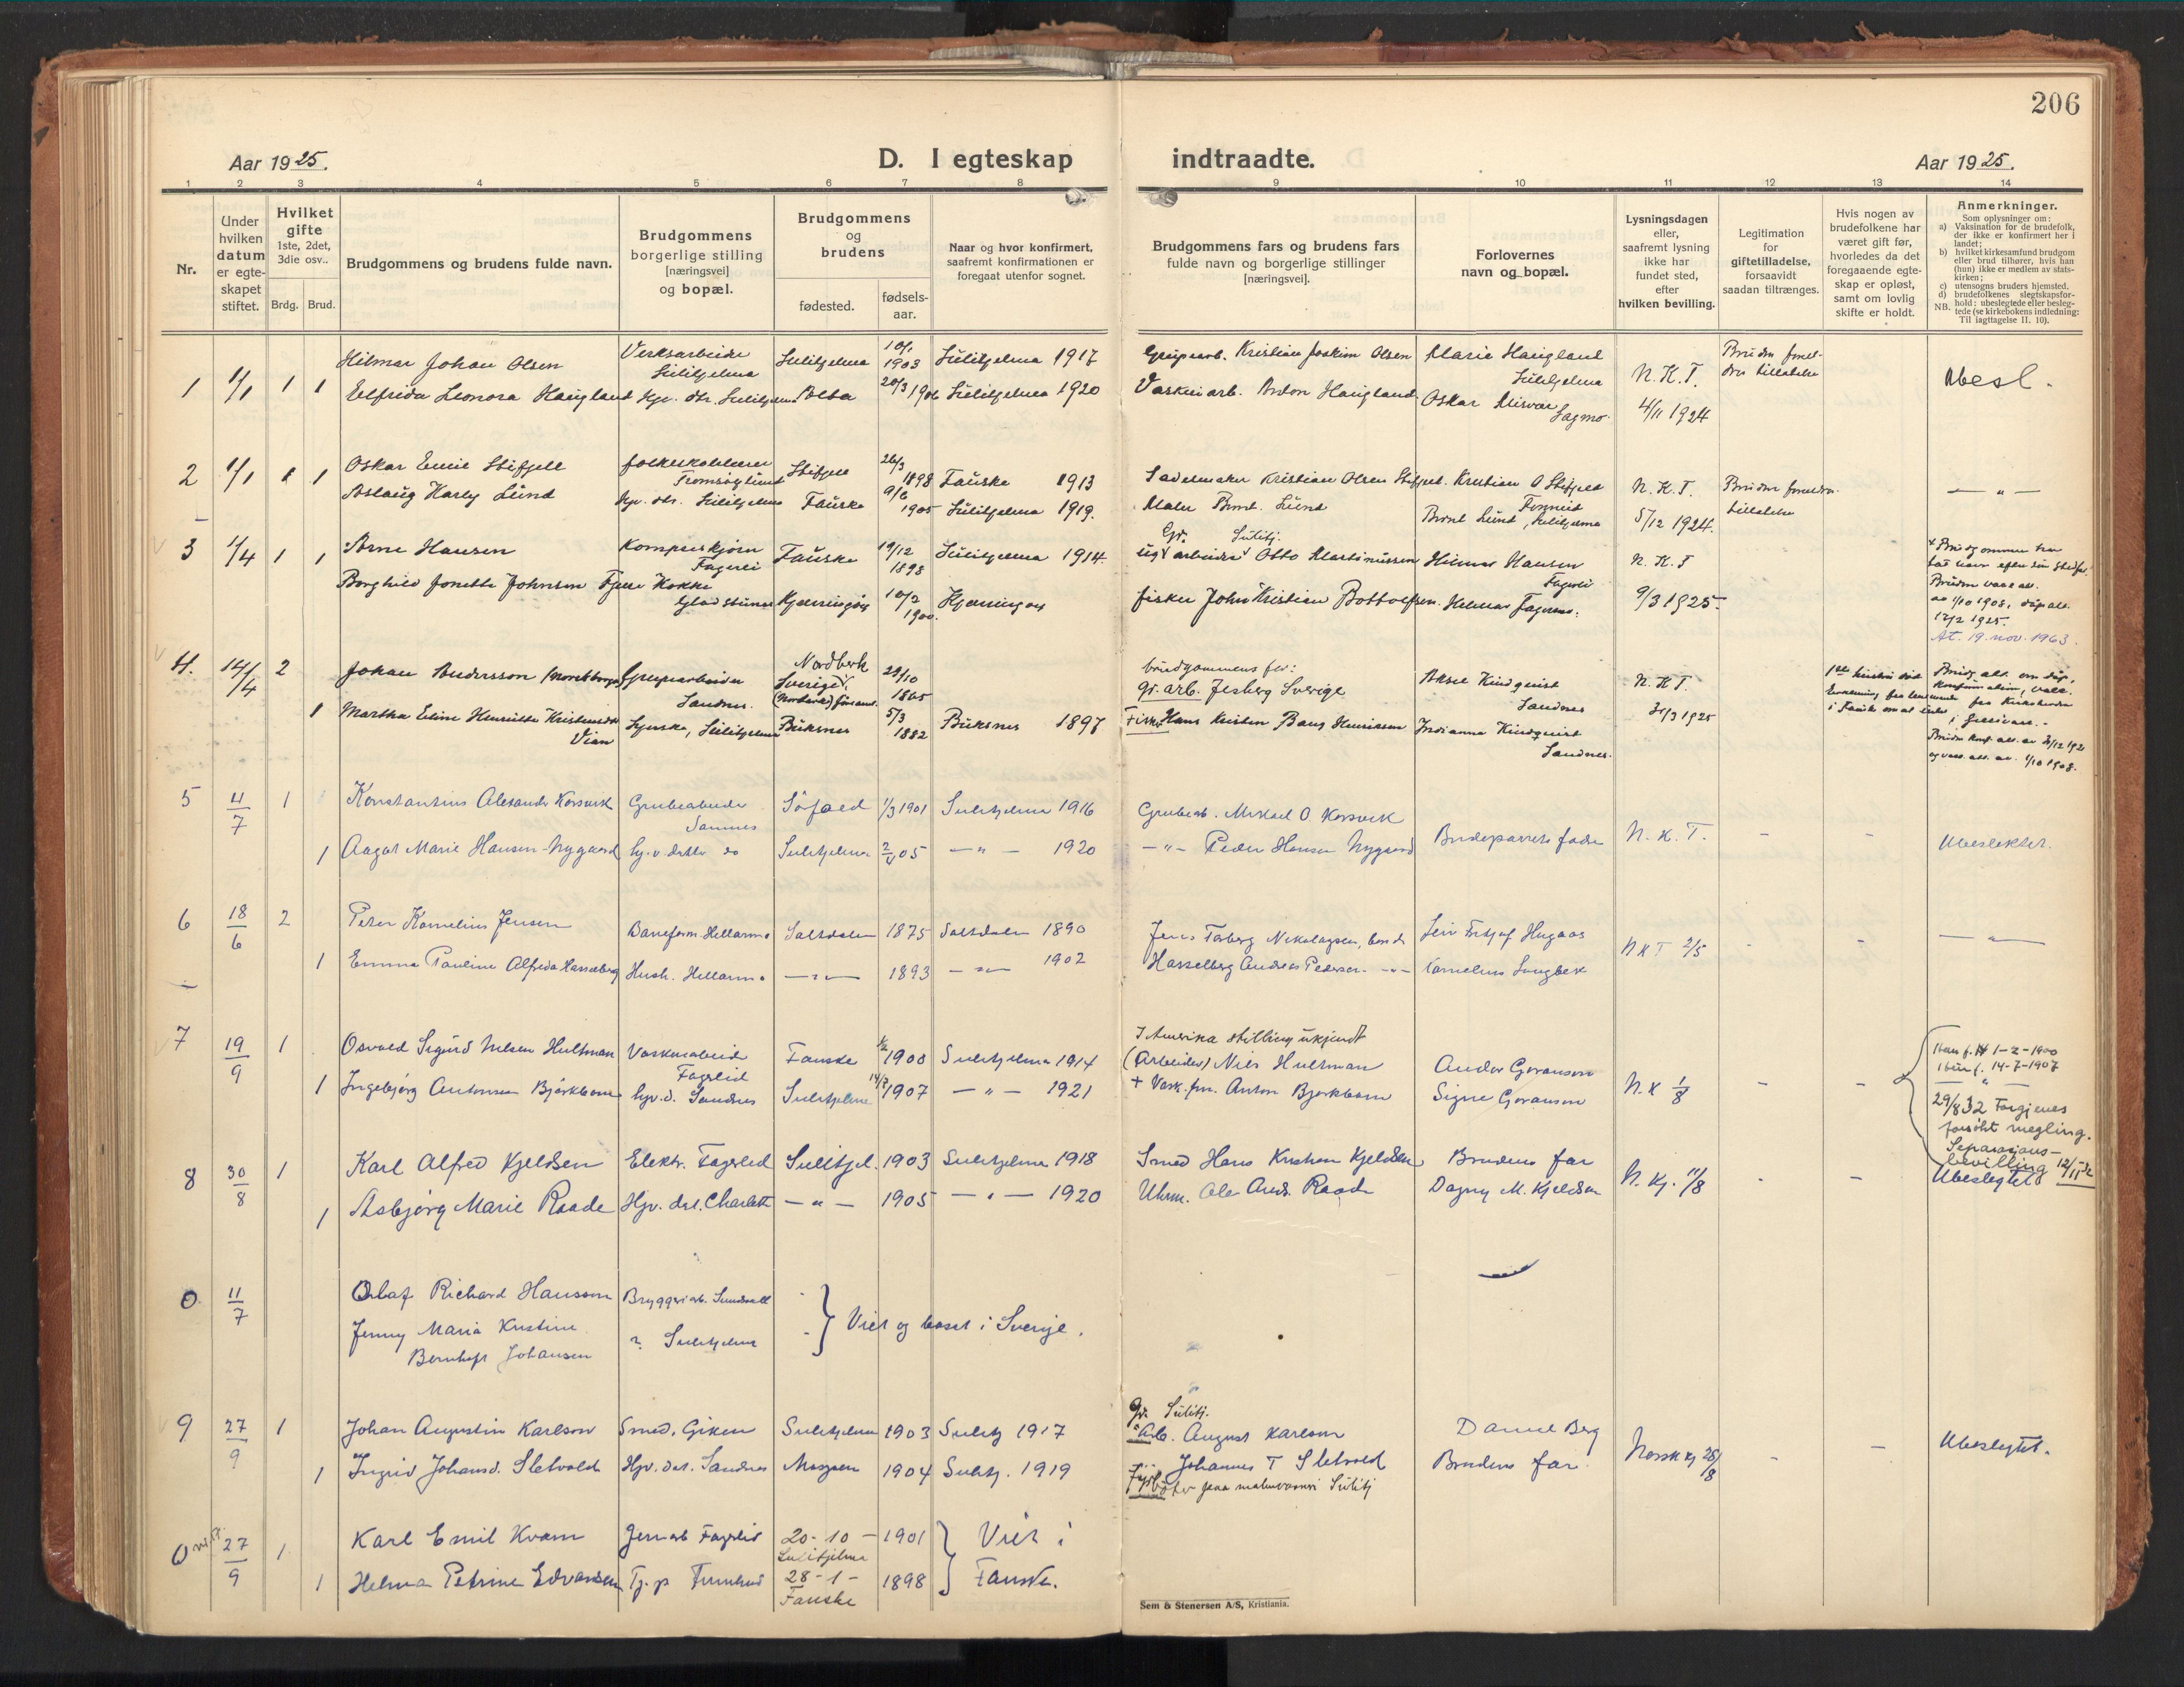 206
Aar 1925.
D. I egteskap indtraadte.
Aar 1925.
1 2 3 4 5 6 7 8 9 10 11 12 13 14
Nr.
Under hvilken datum er egte-skapet stiftet.
Hvilket gifte 1ste, 2det, 3die osv..
Brdg. Brud.
Brudgommens og brudens fulde navn.
Brudgommens borgerlige stilling [næringsvei] og bopæl.
Brudgommens og brudens
fødested.
fødsels-aar.
Naar og hvor konfirmert, saafremt konfirmationen er foregaat utenfor sognet.
Brudgommens fars og brudens fars fulde navn og borgerlige stillinger [næringsvei].
Forlovernes navn og bopæl.
Lysningsdagen eller, saafremt lysning ikke har fundet sted, efter hvilken bevilling.
Legitimation for giftetilladelse, forsaavidt saadan tiltrænges.
Hvis nogen av brudefolkene har været gift før, hvorledes da det foregaaende egte-skap er opløst, samt om lovlig skifte er holdt.
Anmerkninger.
Som oplysninger om:
a) Vaksination for de brudefolk, der ikke er konfirmert her i landet;
b) hvilket kirkesamfund brudgom eller brud tilhører, hvis han (hun) ikke er medlem av stats-kirken;
c) utensogns bruders hjemsted.
d) brudefolkenes slegtskapsfor-hold: ubeslegtede eller besleg-tede (se kirkebokens indledning: Til iagttagelse II. 10).
NB.
1 1/1 1 Hilmar Johan Olsen Verksarbeider Sulitjelma Sulitjelma 1903 Sulitjelma 1917 Kristian Joakim Olsen Marie Haugland Sulitjelma N.K.T. 4/11 1924 Ubesl.
1 Elfrida Leonora Haugland Hjv. dtr. Sulitjelma 20/3 Sulitjelma 1920 Vaskeriarb. Anton Haugland Oskar Misvær Sagmo
2 1/1 1 Oskar Emil Stifjell Stifjell 26/3 1898 Fauske 1913 Sadelmaker Kristian Olsen Stifjell Kristian O Stifjell N.K.T. 5/12 1924. — " —
1 Aslaug Harly Lund Hjv. dtr. Sulitjelma Fauske 9/6 1905 Sulitjelma 1919. Maler Bernt Lund Bernt Lund, Sulitjelma
3 11/4 1 Arne Hansen Fagerli Fauske 19/12 1898 Sulitjelma 1914. Gr. arbeider Sulitj. Otto Martinussen Hilmar Hansen Fagerli N.K.T 9/3 1925.
1 Borghild Jonette Johnsen Fjell Kokke Kjerringøy 10/2 1900. Kjerringøy fisker John Kristian Bottolfsen. Hilmar
Bruden vacc. att. av 1/10 1908, dåp att. 12/2 1925.
At. 19. nov. 1963.
4. 14/4 2 Johan Andersson Grubearbeider Sandnes. Nordberk Sverige 29/10 1865 brudgommens far: gr. arb. Jesberg Sverige Aksel Kindqvist Sandnes N.K.T. 31/3 1925
1 Martha Eline Henrikke Kristensdtr Vian Sulitjelma Buksnes 5/3 1882 Buksnes 1897 Fisker Hans Kristen Bang Henriksen Kindqvist Sandnes.
5 11/7 1 Konstantius Alexander Korsvik Grubearbeider Sannes Sörfold 1/3 1901 Sulitjelma 1916 Grubearb. Mikael O Korsvik Brudeparrets fædre N.K.T. - - Ubeslektet.
1 Aagot Marie Hansen-Nygaard hj. v. datter do Sulitjelma 05 — " — 1920 — " — Peder Hansen Nygaard
6 18/6 2 Peter Kornelius Jensen Hellarmo Saltdalen 1875 Saltdalen 1890 Jens Torberg Nikolaysen, bonde Leiv Fritjof Hugaas N K T 2/5 - - — " —
1 Emma Pauline Alfrida Hasselberg Hush. Hellarmo — " — 1893 — " — 1902 Hasselberg Andreas Pedersen — " — Kornelius Langbek
7 19/9 1 Osvald Sigurd Nelsen Hultman Fagerlid Fauske 1900 Sulitjelma 1914 I Amerika stilling ukjendt (Arbeider) Nils Hultman Ander Goranson N.K 1/8 - -
1 Ingebjørg Antonsen Bjørkbom hjv. d. Sandnes Sulitjelma 14/7 1907 — " — 1921 + Vask. fm. Anton Bjørkbom Signe Goranson
Han f. 1-2-1900
Hun f. 14-7-1907
— " —
29/8 32 Forgjeves forsøkt megling. Separasjons-bevilling 12/11 32
8 30/8 1 Karl Alfred Kjeldsen Elektr. Fagerlid Sulitjel. 1903 Sulitjelma 1918 Smed Hans Kristian Kjeldsen Brudens far N. Kj. 11/8 - - Ubeslegtet
1 Asbjørg Marie Raade Hjv. dat. Charlotte — " — 1905 — " — 1920 Uhrm. Ole Andr. Raade Dagny M. Kjeldsen
0. 11/7 Olaf Richard Hansson Bryggeriarb. Sundsvall } Viet og bosat i Sverige.
Jenny Maria Kristine Bernhoft Johansen ? Sulitjelma
9 27/9 1 Johan Augustin Karlson Smed, Giken Sulitjelma 1903 Sulitj 1917 Gr. Arb. Sulitj. August Karlson Daniel Berg Norsk kj 28/8 - - Ubeslegtet.
1 Ingrid Johansd. Sletvold Hjv. dat. Sandnes Mosjøen 1904 Sulitj. 1919 Johannes T Sletvold Brudens far.
Fyrbøter paa Sulitj
0 27/9 1 Karl Emil Kvam Jernarb Fagerlid 20-10-1901 Sulitjelma } Viet i Fauske.
1 Helma Petrine Edvardsen Tj. p Furulund 28-1-1898 Fauske
Sem & Stenersen A/S, Kristiania.